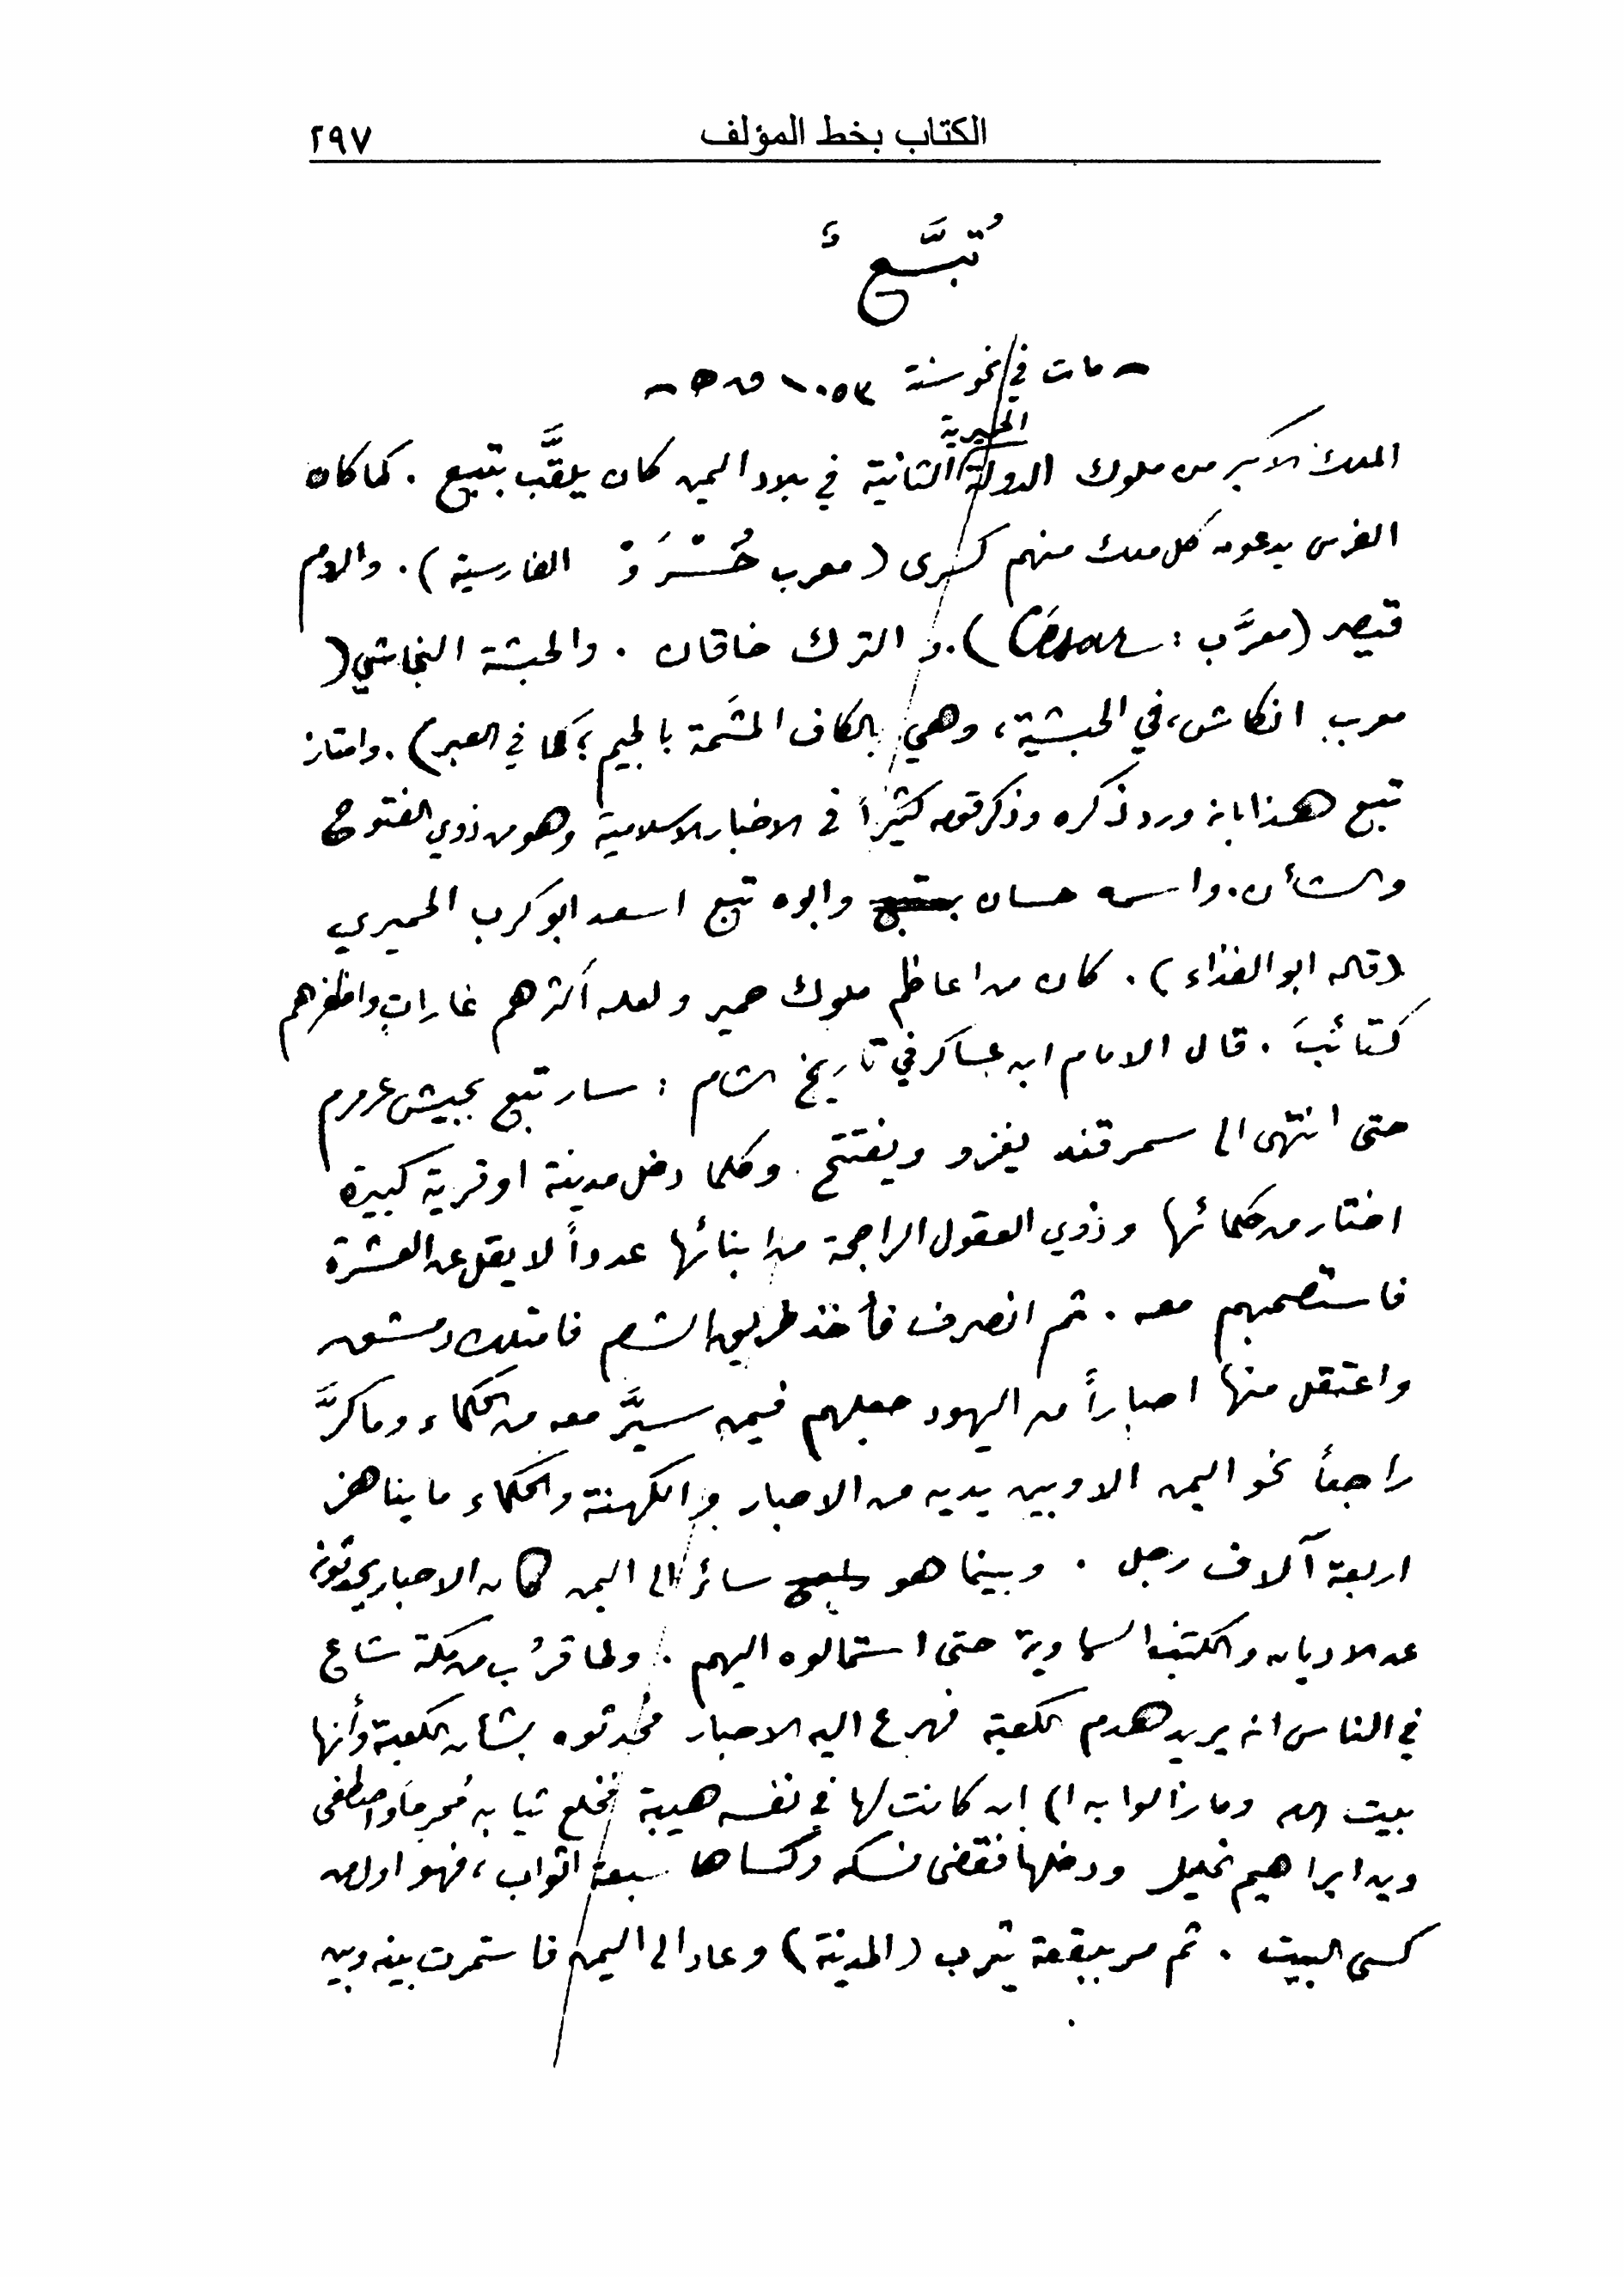 الكتاب بخط المؤلف ٢٩٧
تُبَّع
– مات في نحو سنة ١٠٥٣ ق ه –
الحميرية
الملك الاكبر من ملوك الدولة الثانية في بلاد اليمن كان يلقَّب بتبع . كما كان
الفرس يدعون كل ملك منهم كسرى (معرب خُسْرَوْ الفارسية) . والروم
قيصر (معرَّب : César) . والترك خاقان . والحبشة النجاشي (
معرب انكاش، في الحبشية، وهي بالكاف المشَمة بالجيم ؛ كما في العبر) . وامتاز
تبع هذا بانه ورد ذكره وذكر قومه كثيراً في الاخبار الاسلامية وهو من ذوي الفتوح
والشأن . واسمه حسان وابوه تبع اسعد ابو كرب الحميري
(قاله ابو الفداء) . كان من اعاظم ملوك حمير ولعله أكثرهم غاراتٍ واظفرهم
كتائبَ . قال الامام ابن عساكر في تاريخ الشام : سار تبع بجيش عرمرم
حتى انتهى الى سمرقند يغزو ويفتتح . وكلما دخل مدينة او قرية كبيرة
اختار من حكمائها وذوي العقول الراجحة من ابنائها عدداً لا يقل عن العشرة
فاستصحبهم معه . ثم انصرف فأخذ طريق الشام فامتلك دمشق
واعتقل منها احباراً من اليهود جعلهم فيمن سيَّر معه من الحكماء وما كرَّ
راجعاً نحو اليمن الا وبين يديه من الاحبار والكهنة والحكماء ما يناهز
اربعة آلاف رجل . وبينما هو سائر الى اليمن كان الاحبار يحدثونه
عن الاديان والكتب السماوية حتى استمالوه اليهم . ولما قرُب من مكة شاع
في الناس انه يريد هدم الكعبة فهرع اليه الاحبار فحدثوه بشان الكعبة وأنها
بيت الله وما زالوا به الى ان كانت لها في نفسه هيبة فخلع ثيابه مُحرِماً واصطفى
دين ابراهيم الخليل ودخلها فقضى نسكه وكساها سبعة اثواب ، فهو اول من
كسى البيت . ثم مر ببقعة يثرب (المدينة) وعاد الى اليمن فاستمرت بينه وبين